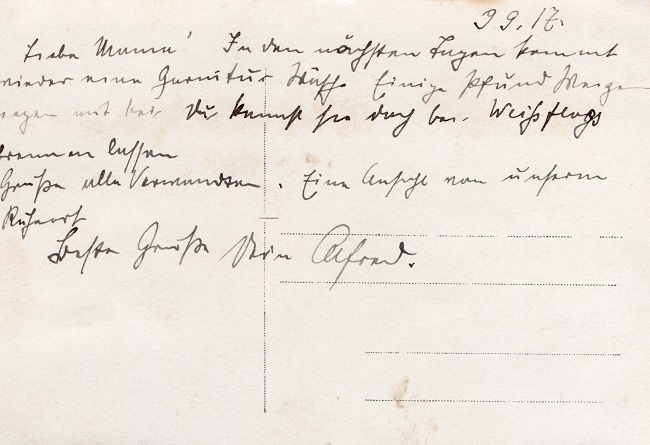 9 9. 17.
Liebe Mama! In den nächsten Tagen kommt
wieder eine Garnitur Wäsche Einige Pfund Weizen
liegen mit bei. Du kannst sie doch bei. Weißflogs
brennen lassen
Grüße alle Verwandten. Eine Ansicht von unserm
Ruheort
Beste Grüße Dein Alfred.